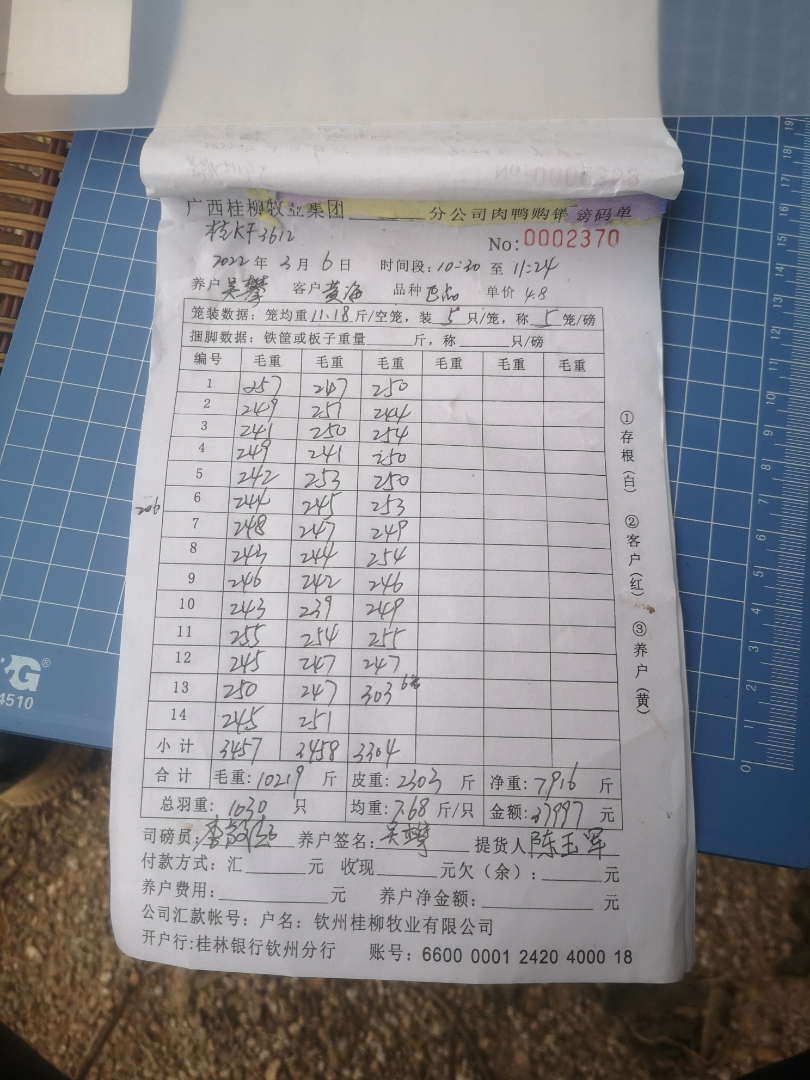 广西桂柳牧业集团______分公司肉鸭购销磅码单
桂KF3612
No: 0002370
2022年3月6日 时间段: 10:30至11:24
养户 吴攀 客户 黄海 品种 单价 4.8
笼装数据: 笼均重11.18斤/空笼, 装5只/笼, 称5笼/磅
捆脚数据: 铁筐或板子重量______斤, 称______只/磅
编号 毛重 毛重 毛重 毛重 毛重 毛重
1 257 247 250
2 249 251 244
3 241 250 254
4 249 241 250
5 242 253 250
206
6 244 245 253
7 248 247 249
8 243 244 254
9 246 242 246
10 243 239 249
11 255 254 255
12 245 247 247
13 250 247 303 6笼
14 245 251
小计 3457 3458 3304
合计 毛重: 10219斤 皮重: 2303斤 净重: 7916斤
总羽重: 1030只 均重: 7.68斤/只 金额: 37997元
司磅员: 养户签名: 吴攀 提货人 陈玉军
付款方式: 汇______元 收现______元欠(余): ______元
养户费用: ______元 养户净金额: ______元
公司汇款帐号: 户名: 钦州桂柳牧业有限公司
开户行: 桂林银行钦州分行 账号: 6600 0001 2420 4000 18
①存根(白) ②客户(红) ③养户(黄)
4510
0 1 2 3 4 5 6 7 8 9 10 11 12 13 14 15 16 17 18 19